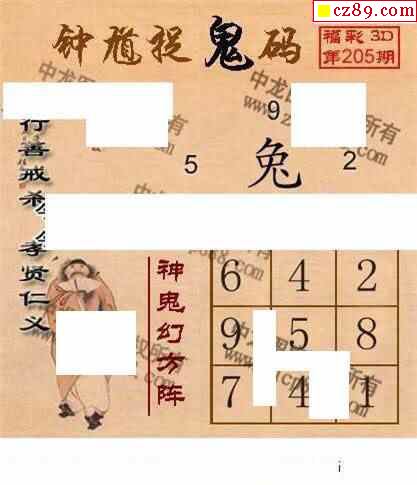 cz89.com
钟馗捉鬼码
福彩3D
第205期
9
兔
5
2
行善戒杀
孝贤仁义
神鬼幻方阵
6 4 2
9 5 8
7 4 1
i